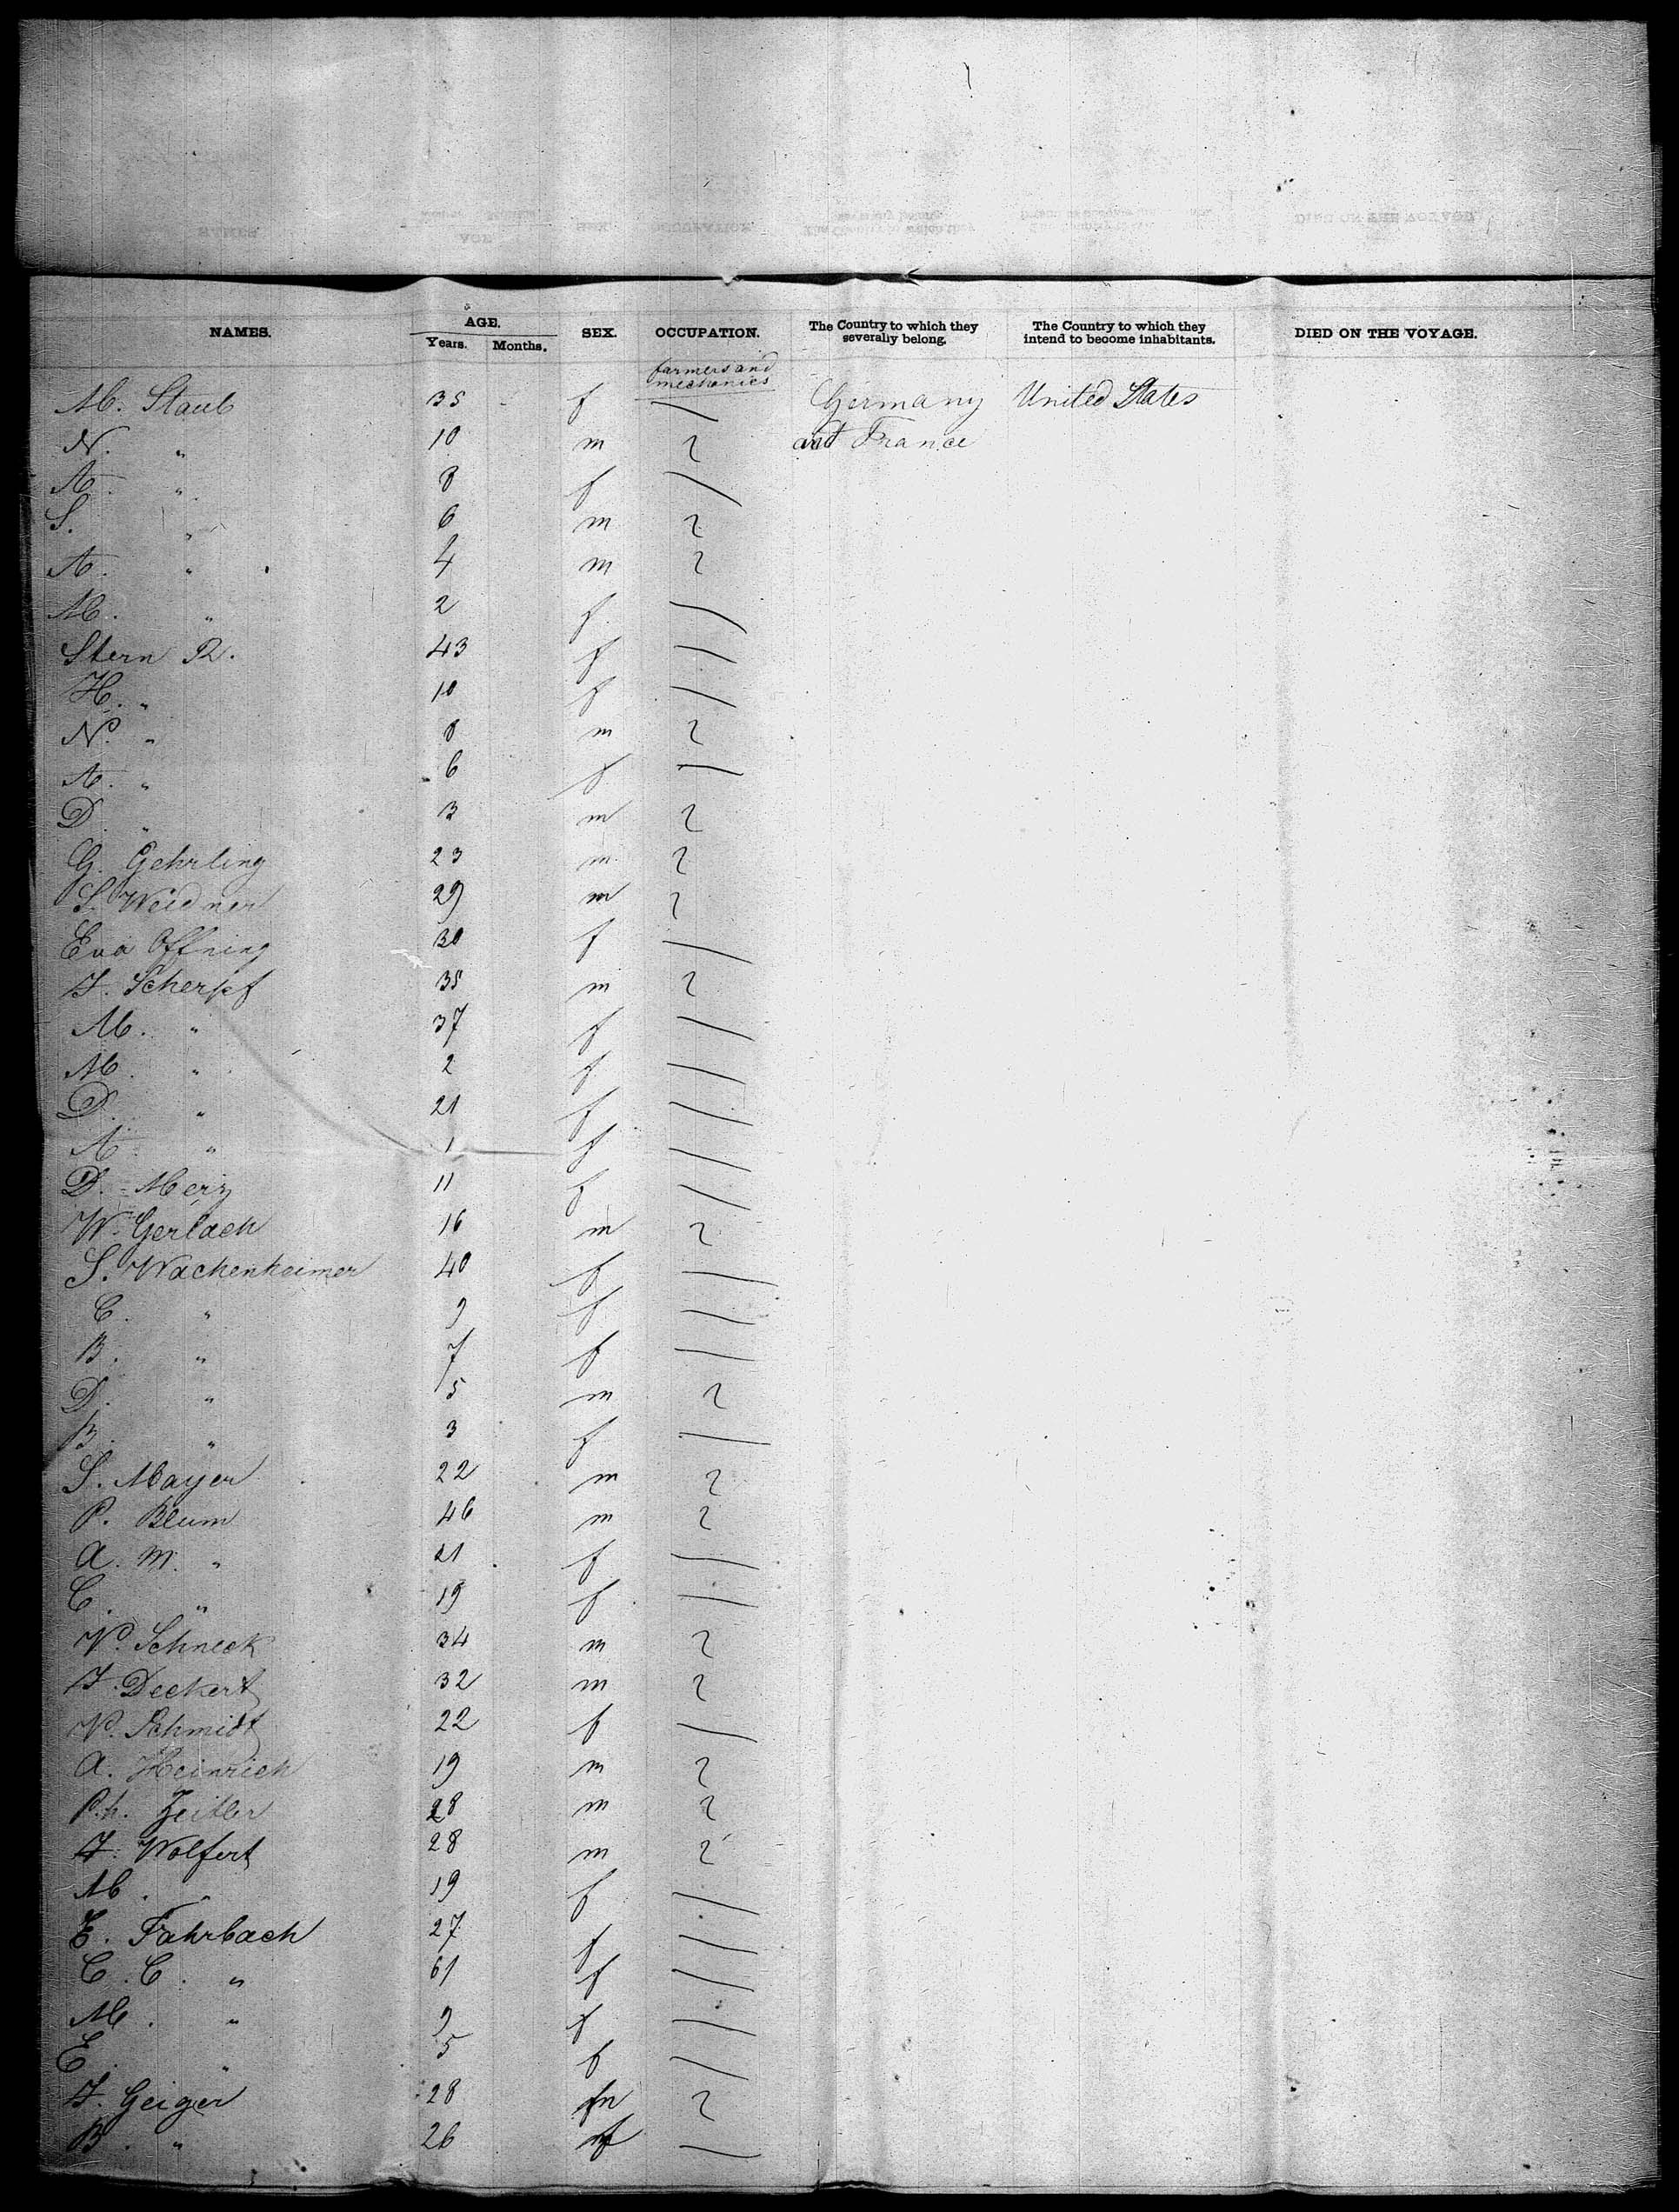 NAMES. AGE. SEX. OCCUPATION. The Country to which they severally belong. The Country to which they intend to become inhabitants. DIED ON THE VOYAGE.
Years. Months.
farmers and
mechanics
M. Staub 35 f Germany United States
N. " 10 m and France
A. " 8 f
S. " 6 m
A. " 4 m
M. " 2 f
Stern R. 43 f
H. " 10 f
N. " 8 m
A. " 6 f
D. " 3 m
G. Gehrling 23 m
S. Weidner 29 m
Eva Offning 30 f
J. Scherpf 35 m
M. " 37 f
M. " 2 f
D. " 21 f
A. " 1 f
D. Merz 11 f
W. Gerlach 16 m
S. Wachenheimer 40 f
C. " 9 f
B. " 7 f
D. " 5 m
B. " 3 f
S. Mayer 22 m
P. Blum 46 m
A. M. " 21 f
C. " 19 f
N. Schneck 34 m
J. Deckert 32 m
N. Schmidt 22 f
A. Heinrich 19 m
Ph. Zeitler 28 m
J. Wolfert 28 m
M. " 19 f
E. Fahrbach 27 f
C. C. " 61 f
M. " 9 f
E. " 5 f
J. Geiger 28 m
B. " 26 f